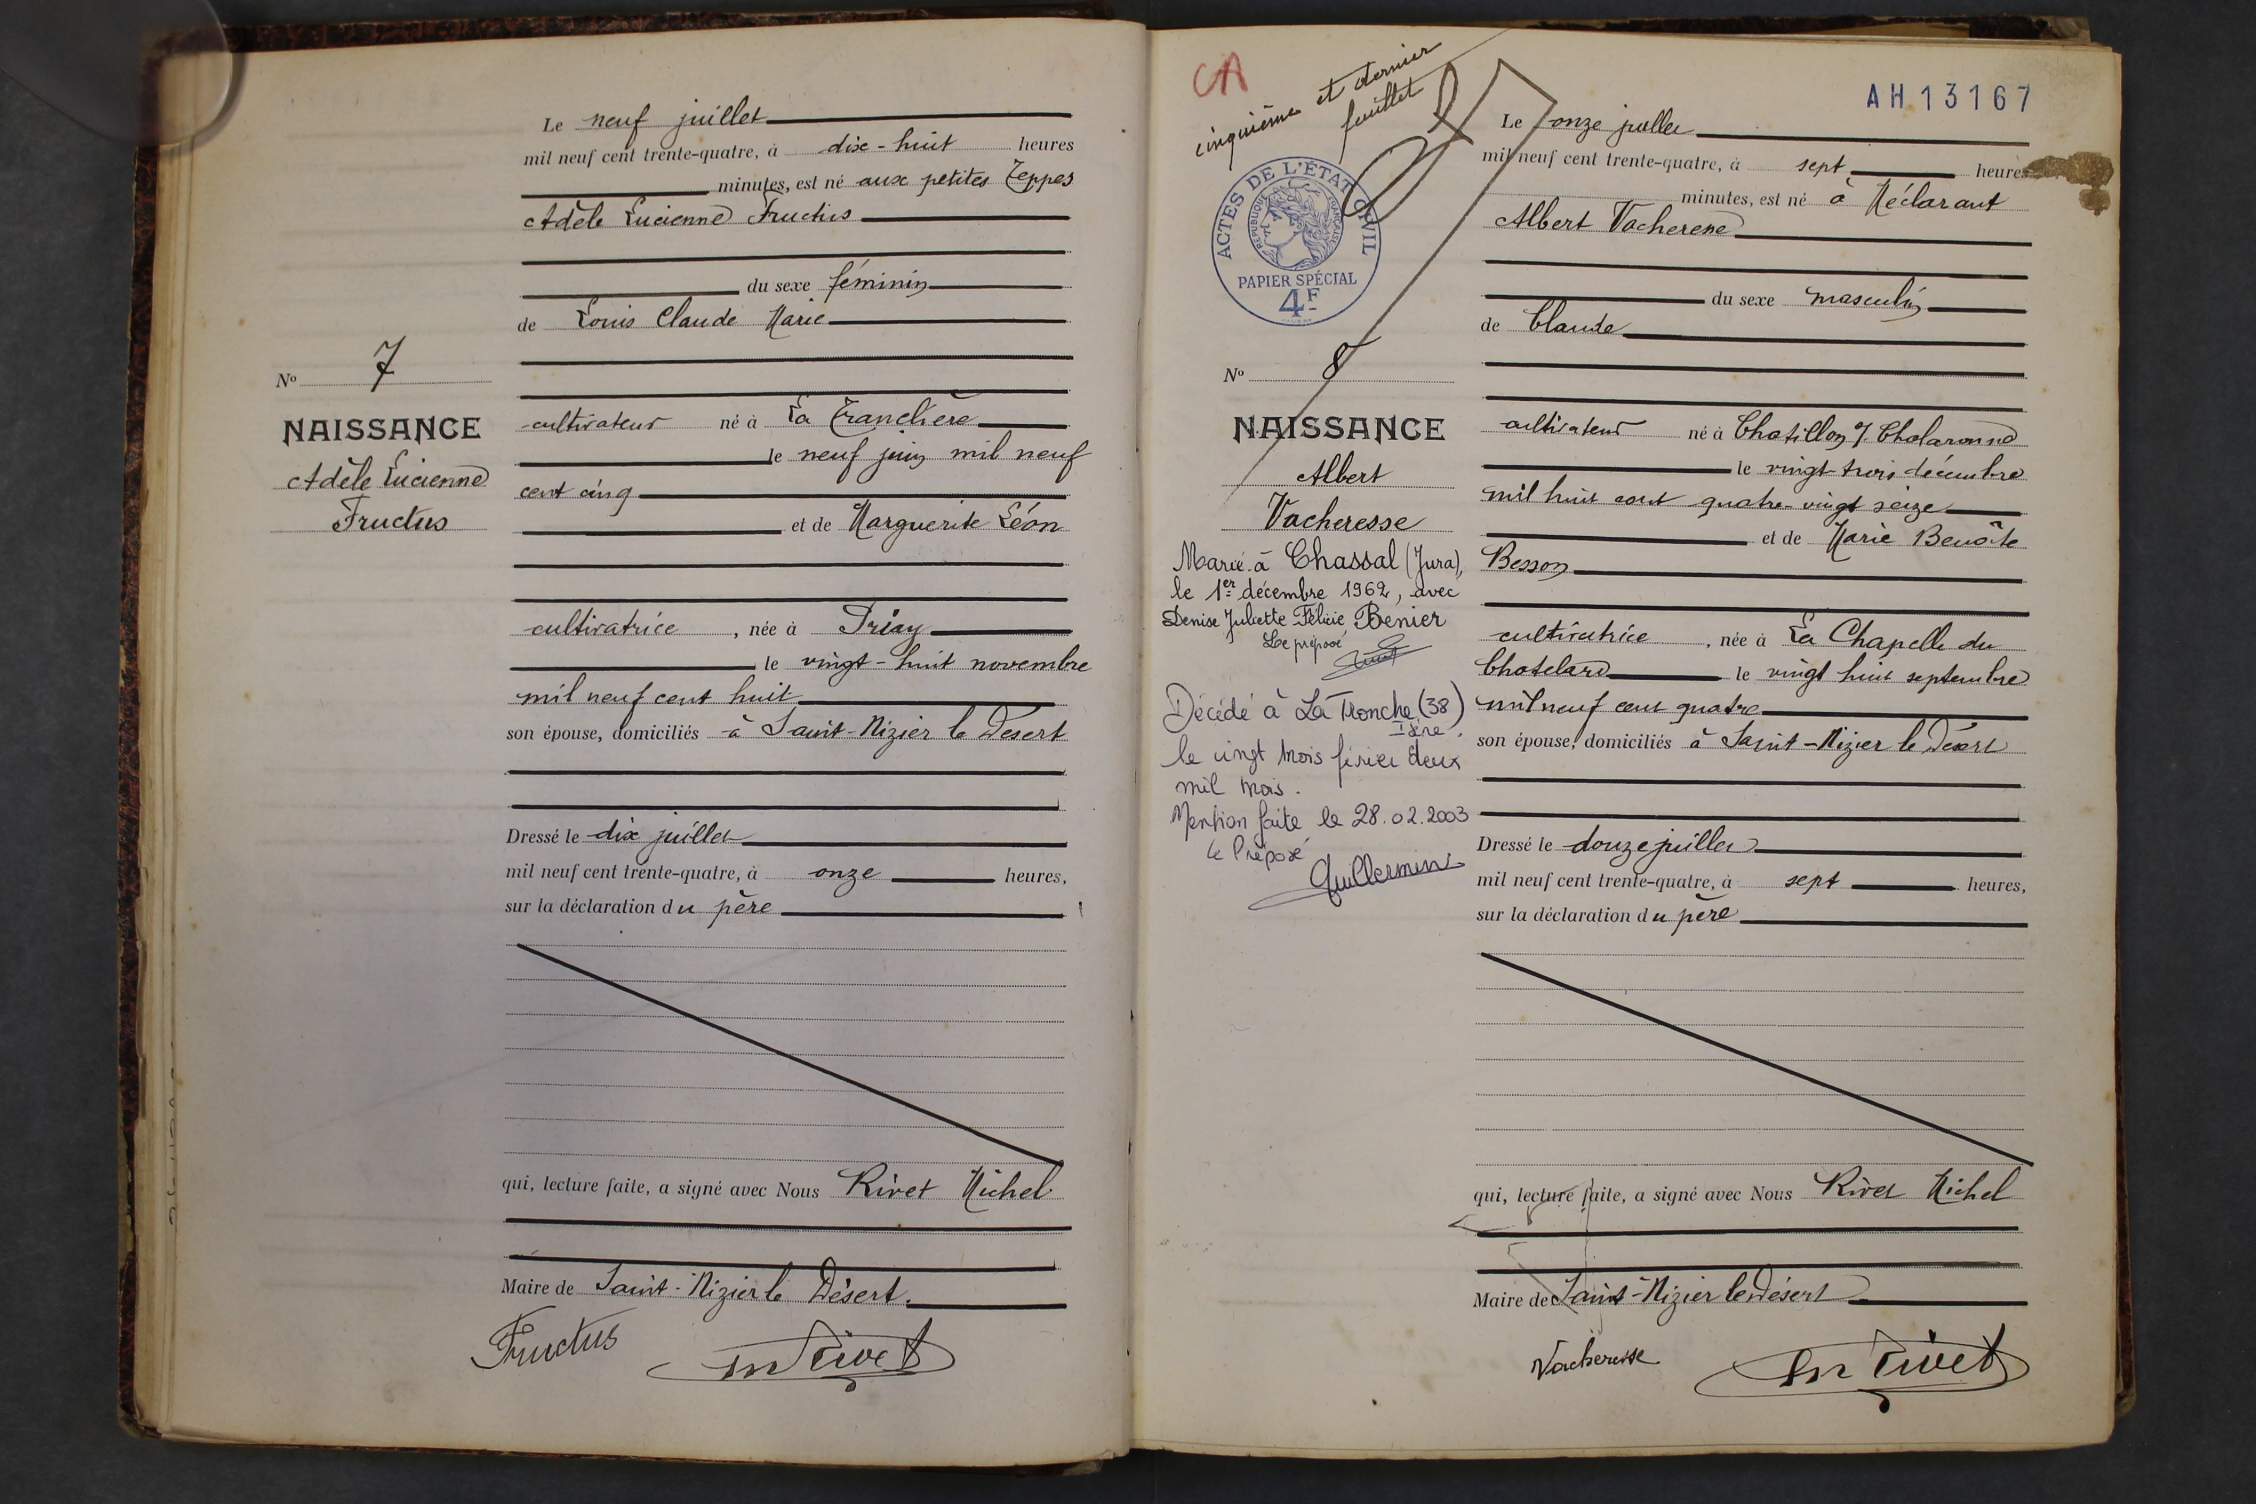 Le neuf juillet
mil neuf cent trente-quatre, à dix-huit heures
minutes, est né aux petites Teppes
Adèle Lucienne Fructus
du sexe féminin
de Louis Claude Marie
No 7
NAISSANCE
Adèle Lucienne
Fructus
cultivateur né à La Tranclière
le neuf juin mil neuf
cent cinq
et de Marguerite Léon
cultivatrice, née à Priay
le vingt-huit novembre
mil neuf cent huit
son épouse, domiciliés à Saint-Nizier le Désert
Dressé le dix juillet
mil neuf cent trente-quatre, à onze heures,
sur la déclaration du père
qui, lecture faite, a signé avec Nous Rivet Michel
Maire de Saint-Nizier le Désert.
Fructus
M Rivet
CA
cinquième et dernier
feuillet
AH 13167
ACTES DE L'ÉTAT CIVIL
RÉPUBLIQUE FRANÇAISE
PAPIER SPÉCIAL
4F
Le onze juillet
mil neuf cent trente-quatre, à sept heures
minutes, est né à
Albert Vacheresse
du sexe masculin
de Claude
No 8
NAISSANCE
Albert
Vacheresse
Marié à Chassal (Jura),
le 1er décembre 1962, avec
Denise Juliette Félicie Benier
Le préposé
Décédé à La Tronche (38)
Isère
le vingt trois février deux
mil trois.
Mention faite le 28.02.2003
Le Préposé
Guillermin
cultivateur né à Chatillon s/ Chalaronne
le vingt-trois décembre
mil huit cent quatre-vingt seize
et de Marie Benoîte
Besson
cultivatrice, née à La Chapelle du
Chatelard le vingt huit septembre
mil neuf cent quatre
son épouse, domiciliés à Saint-Nizier le Désert
Dressé le douze juillet
mil neuf cent trente-quatre, à sept heures,
sur la déclaration du père
qui, lecture faite, a signé avec Nous Rivet Michel
Maire de Saint-Nizier le Désert
Vacheresse
M Rivet